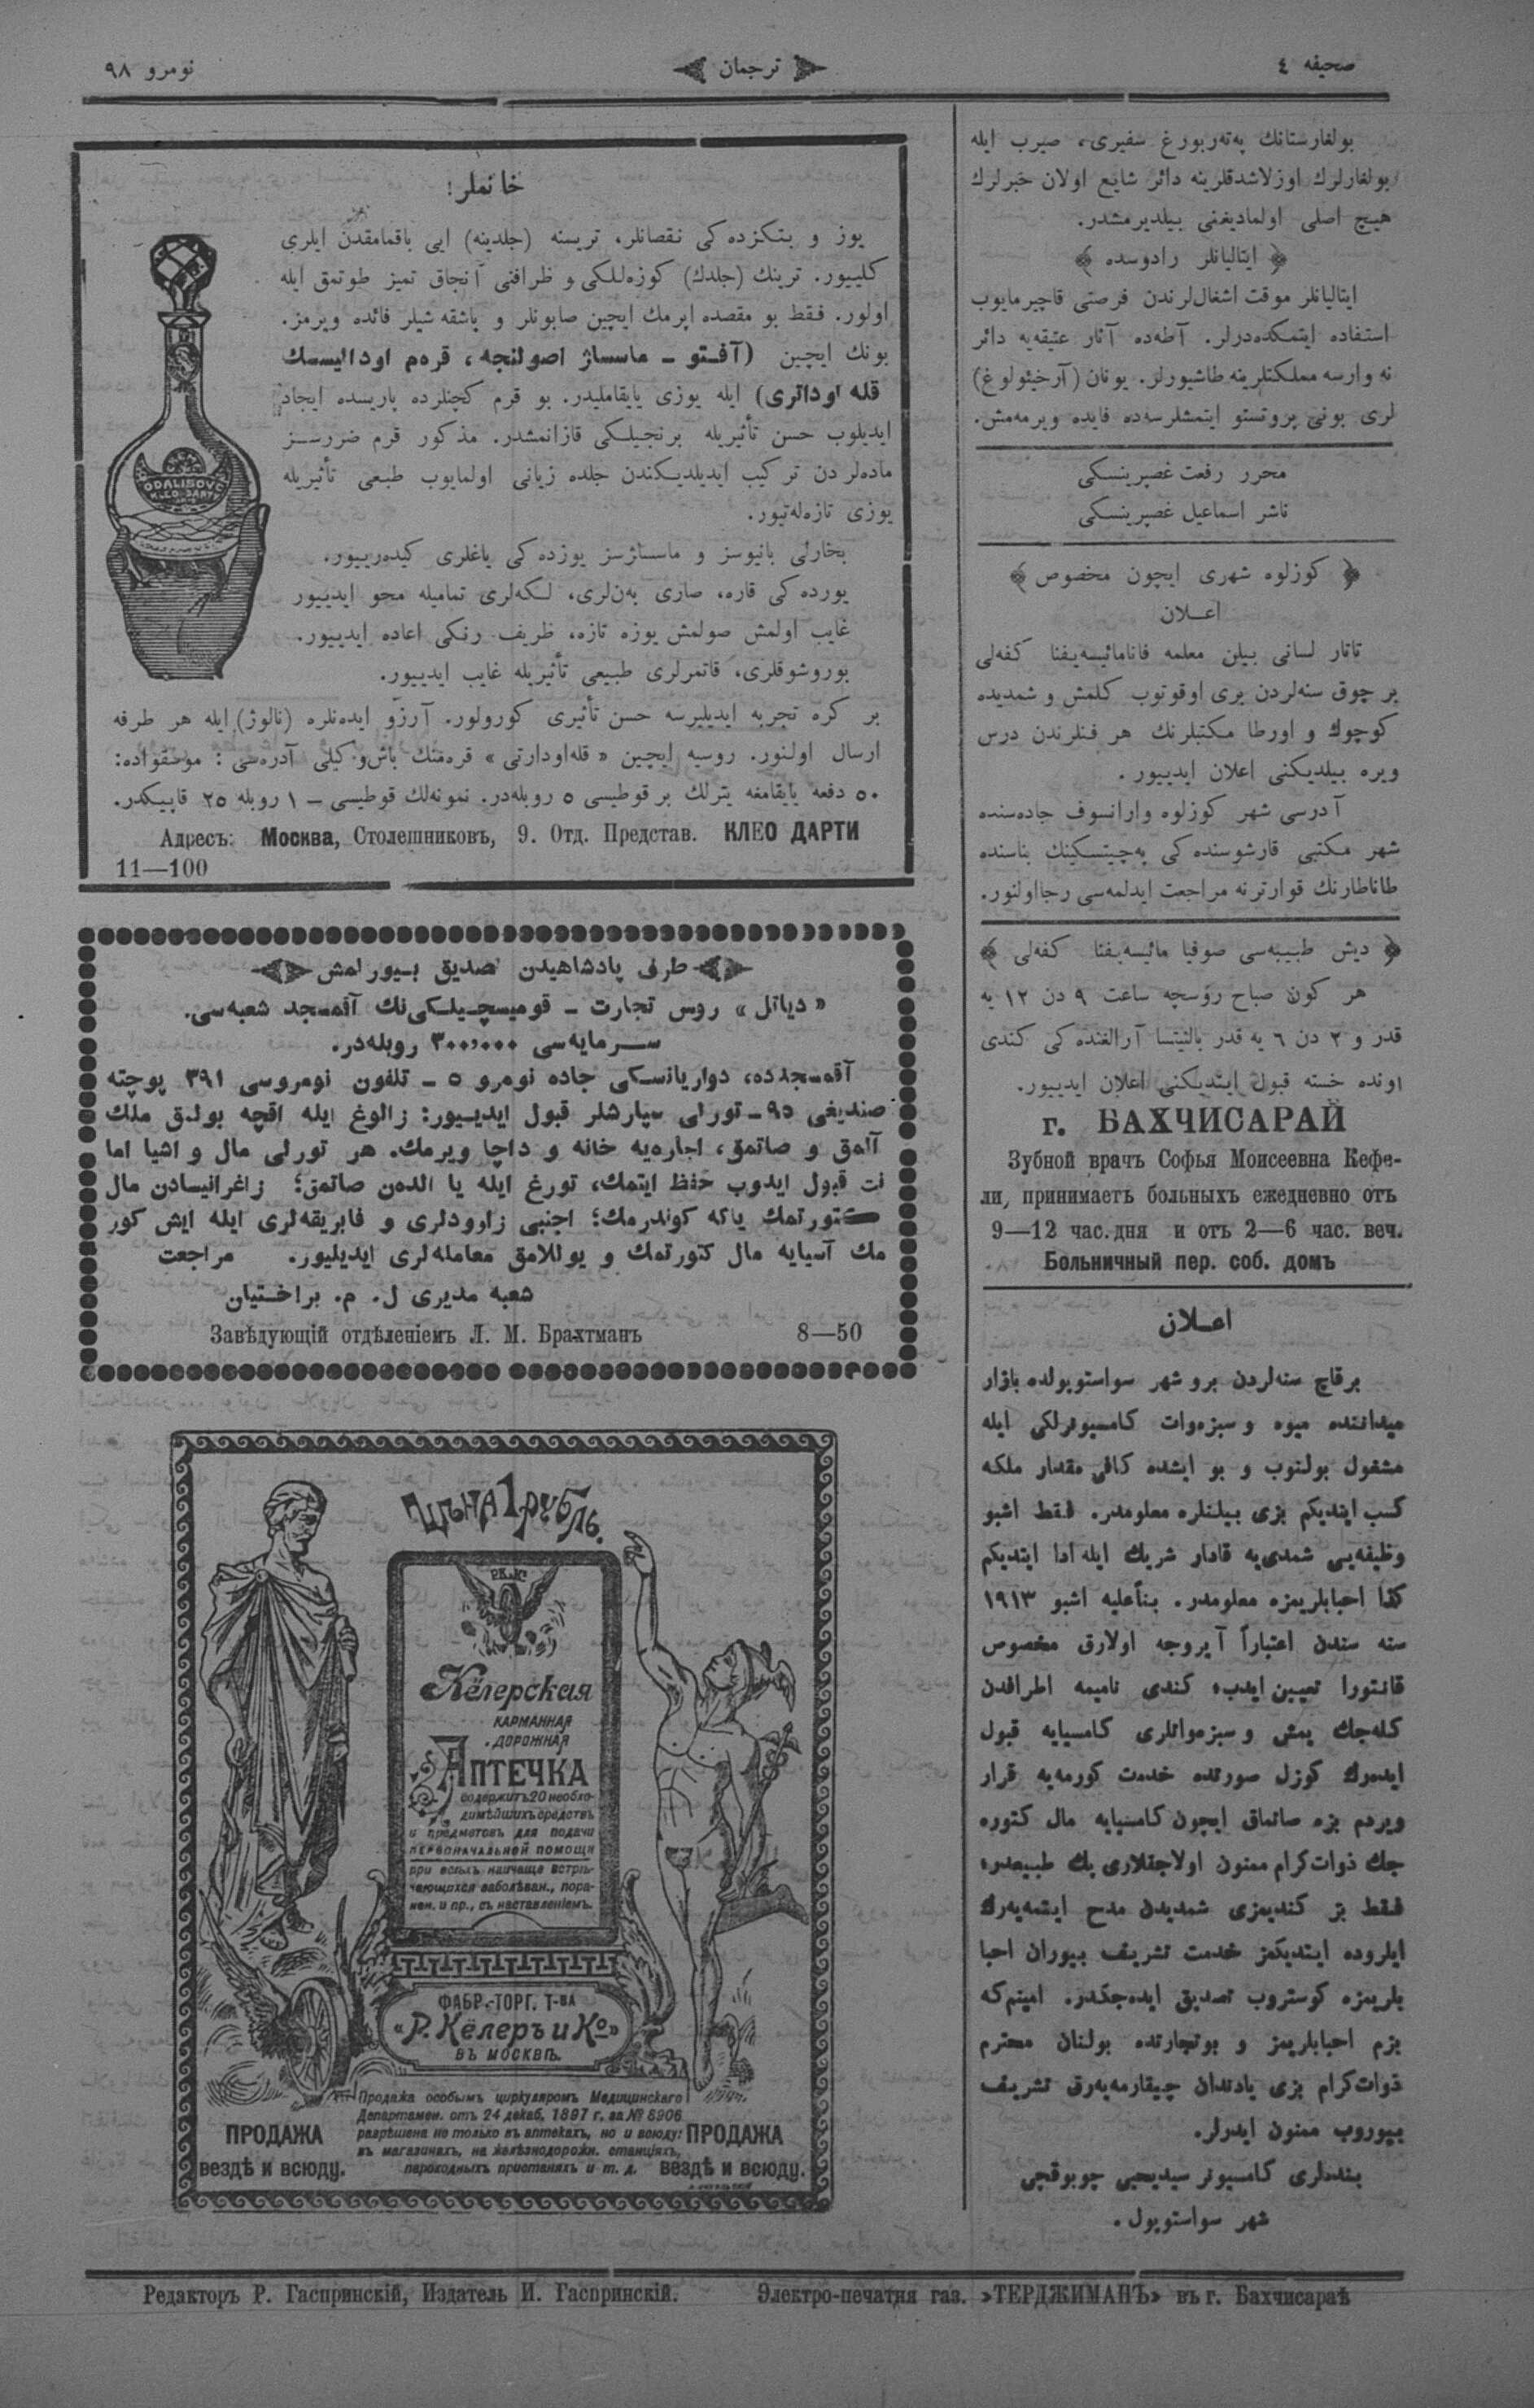 صحیفه ٤
ترجمان
نومرو ٩٨
بولغارستانك پەتەربورغ سفیری، صیرب ایله
بولغارلرك اوزلاشدقلرینه دائر شایع اولان خبرلرك
هیچ اصلی اولمادیغنی بیلدیرمشدر.
﴿ ایتالیانلر رادوسده ﴾
ایتالیانلر موقت اشغال‌لرندن فرصتی قاچیرمایوب
استفاده ایتمكده‌درلر. آطه‌ده آثار عتیقه‌یه دائر
نه وارسه مملكتلرینه طاشیورلر. یونان (آرخیئولوغ)
لری بونی پروتستو ایتمشلرسه‌ده فایده ویرمه‌مش.
محرر رفعت غصپرینسكی
ناشر اسماعیل غصپرینسكی
﴿ كوزلوه شهری ایچون مخصوص ﴾
اعـلان
تاتار لسانی بیلن معلمه فانامائیسه‌یفنا كفه‌لی
بر چوق سنه‌لردن بری اوقوتوب كلمش و شمدیده
كوچوك و اورطا مكتبلرنك هر فنلرندن درس
ویره بیلدیكنی اعلان ایدییور.
آدرسی شهر كوزلوه وارانسوف جاده‌سنده
شهر مكتبی قارشوسنده‌كی په‌چیتسكینك بناسنده
طاناطارنك قوارترنه مراجعت ایدلمه‌سی رجا اولنور.
﴿ دیش طبیبه‌سی صوفیا مائیسه‌یفنا كفه‌لی ﴾
هر كون صباح رؤسچه ساعت ٩ دن ١٢ یه
قدر و ٢ دن ٦ یه قدر بالنیتسا آرالغنده‌كی كندی
اونده خسته قبول ایتدیكنی اعلان ایدییور.
г. БАХЧИСАРАЙ
Зубной врачъ Софья Моисеевна Кефе-
ли, принимаетъ больныхъ ежедневно отъ
9—12 час. дня и отъ 2—6 час. веч.
Больничный пер. соб. домъ
اعـلان
برقاچ سنه‌لردن برو شهر سواستوپولده بازار
میداننده میوه و سبزه‌وات كامسیونرلكی ایله
مشغول بولنوب و بو ایشده كافی مقدار ملكه
كسب ایتدیكم بزی بیلنلره معلومدر. فقط اشبو
وظیفه‌یی شمدی‌یه قادار شریك ایله ادا ایتدیكم
كذا احبابلریمزه معلومدر. بناًعلیه اشبو ١٩١٣
سنه سندن اعتباراً آیروجه اولارق مخصوص
قانتورا تعیین ایدب، كندی نامیمه اطرافدن
كله‌جك یمش و سبزه‌واتلری كامسیایه قبول
ایده‌رك كوزل صورتده خدمت كورمه‌یه قرار
ویردم بزه صاتماق ایچون كامسیایه مال كتوره
جك ذوات‌كرام ممنون اولاجقلاری پك طبیعدر،
فقط بز كندیمزی شمدیدن مدح ایتمه‌یه‌رك
ایلروده ایتدیكمز خدمت تشریف بیوران احبا
بلریمزه كوستروب تصدیق ایده‌جكدر. امینم كه
بزم احبابلریمز و بوتجارتده بولنان محترم
ذوات‌كرام بزی یادندان چیقارمه‌یه‌رق تشریف
بیوروب ممنون ایدرلر.
بنده‌لری كامسیونر سیدیحیی چوبوقچی
شهر سواستوپول.
خانملر!
یوز و بتكزده‌كی نقصانلر، تریسنه (جلدینه) ایی باقمامقدن ایلری
كلییور. ترینك (جلدك) كوزه‌للكی و ظرافنی آنجاق تمیز طوتمق ایله
اولور. فقط بو مقصده ایرمك ایچین صابونلر و باشقه شیلر فائده ویرمز.
بونك ایچین (آفـتو ـ ماسساژ اصولنجه، قره‌م اودالیسـك
قله اوداتری) ایله یوزی یایقاملیدر. بو قرم كچنلرده پاریسده ایجاد
ایدیلوب حسن تأثیریله برنجیلـكی قازانمشدر. مذكور قرم ضررسـز
ماده‌لر دن تركیب ایدیلدیـكندن جلده زیانی اولمایوب طبعی تأثیریله
یوزی تازه‌له‌تیور.
بخارلی بانیوسز و ماسساژسز یوزده‌كی یاغلری كیده‌رییور.
یورده‌كی قاره، صاری به‌ن‌لری، لـكه‌لری تمامیله محو ایدییور
غایب اولمش صولمش یوزه تازه، ظریف رنكی اعاده ایدییور.
بوروشوقلری، قاتمرلری طبیعی تأثیریله غایب ایدییور.
بر كره تجربه ایدیلیرسه حسن تأثیری كورولور. آرزو ایده‌نلره (نالوژ) ایله هر طرفه
ارسال اولنور. روسیه ایچین «قله‌اودارتی» قره‌منك باش‌و‌كیلی آدره‌سی: موسقواده:
٥٠ دفعه یایقامغه یترلك بر قوطیسی ٥ روبله‌در. نمونه‌لك قوطیسی — ١ روبله ٢٥ قاپیكدر.
ODALISQUE
KLEO DARTY
Адресъ: Москва, Столешниковъ, 9. Отд. Представ. КЛЕО ДАРТИ
11—100
طرف پادشاهیدن تصدیق بـیورلمش
«دیاتل» روس تجارت ـ قومیسچـیلـكی‌نك آقمسجد شعبه‌سی.
ســرمایه‌سی ٣٠٠,٠٠٠ روبله‌در.
آقمـسجدده، دواریانسكی جاده نومرو ٥ ـ تلفون نومروسی ٣٩١ پوچته
صندیغی ٩٥ـ تورلی سپارشلر قبول ایدیـیور: زالوغ ایله اقچه بولمق ملك
آلمق و صاتمق، اجاره‌یه خانه و داچا ویرمك. هر تورلی مال و اشیا اما
نت قبول ایدوب حفظ ایتمك، تورغ ایله یا الدەن صاتمق؛ زاغرانیسادن مال
كتورتمك یاكه كوندرمك؛ اجنبی زاوودلری و فابریقه‌لری ایله ایش كور
مك آسیایه مال كتورتمك و یوللامق معامله‌لری ایدیلیور. مراجعت
شعبه مدیری ل. م. براختیان
Завѣдующій отдѣленіемъ Л. М. Брахтманъ 8—50
Цѣна 1 рубль.
Р.К. и Кº
Кёлерская
КАРМАННАЯ
ДОРОЖНАЯ
АПТЕЧКА
содержитъ 20 необхо-
димѣйшихъ средствъ
и предметовъ для подачи
ПЕРВОНАЧАЛЬНОЙ ПОМОЩИ
при всѣхъ наичаще встрѣ-
чающихся заболѣван., пора-
нен. и пр., съ наставленіемъ.
ФАБР.-ТОРГ. Т-ВА
«Р. Кёлеръ и Кº»
ВЪ МОСКВѢ.
Продажа особымъ циркуляромъ Медицинскаго
Департамен. отъ 24 декаб. 1897 г. за № 8906
разрѣшена не только въ аптекахъ, но и всюду:
въ магазинахъ, на желѣзнодорожн. станціяхъ,
пароходныхъ пристаняхъ и т. д.
ПРОДАЖА
вездѣ и всюду.
ПРОДАЖА
вездѣ и всюду.
Редакторъ Р. Гаспринскій, Издатель И. Гаспринскій. Электро-печатня газ. »ТЕРДЖИМАНЪ» въ г. Бахчисараѣ